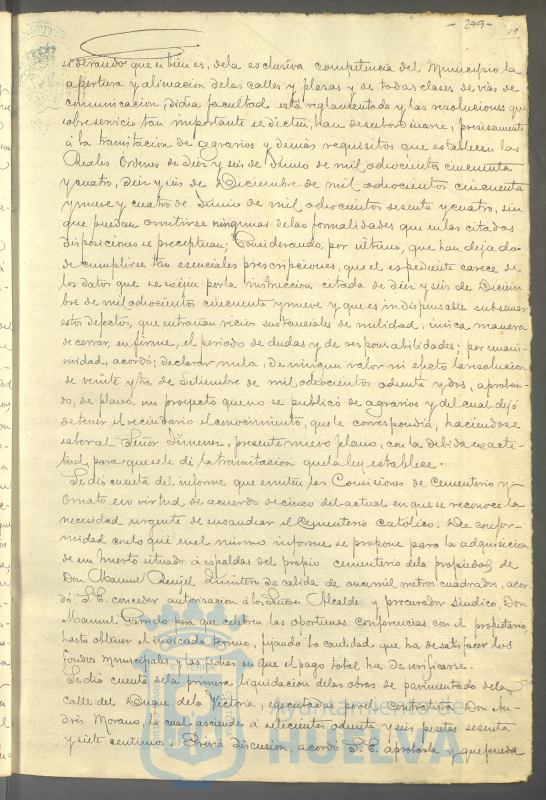 - 249 - 19
siderando que si bien es, de la esclusiva competencia del Municipio la
apertura y alineacion de las calles y plazas y de todas clases de vias de
comunicacion, dicha facultad está reglamentada y las resoluciones que
sobre servicio tan importante se dicten, han de subordinarse, precisamente
á la tramitacion de agrarios y demás requisitos que establecen las
Reales Ordenes de diez y seis de Junio de mil ochocientos cincuenta
y cuatro, diez y seis de Diciembre de mil ochocientos cincuenta
y nueve y cuatro de Junio de mil ochocientos sesenta y cuatro, sin
que puedan omitirse ningunas de las formalidades que en las citadas
disposiciones se preceptuan; Considerando, por ultimo, que han dejado
de cumplirse tan esenciales prescripciones, que el espediente carece de
los datos que se exijen por la instruccion citada de diez y seis de Diciem-
bre de mil ochocientos cincuenta y nueve y que es indispensable subsanar
estos defectos, que entrañan vicios sustanciales de nulidad, unica manera
de cerrar, en firme, el periodo de dudas y de responsabilidades; por unani-
midad, acordó: declarar nula, de ningun valor ni efecto la resolucion
de veinte y tres de Setiembre de mil ochocientos ochenta y dos, aproban-
do, de plano, un proyecto que no se publicó de agrarios y del cual dejó
de tener el vecindario el conocimiento, que le correspondia, haciendose
saber al Señor Jimenez, presente nuevo plano, con la debida exacti-
tud, para que se le dé la tramitacion que la ley establece.
Se dió cuenta del informe que emiten las Comisiones de Cementerio y
Ornato en virtud de acuerdo de cinco del actual en que se reconoce la
necesidad urgente de ensanchar el Cementerio Catolico. De confor-
midad con lo que en el mismo informe se propone para la adquisicion
de un huerto situado á espaldas del propio cementerio de la propiedad de
Don Manuel Quintero de cabida de once mil metros cuadrados, acor-
dó S.E. conceder autorizacion á los Señores Alcalde y procurador sindico, Don
Manuel Garrido para que celebren las oportunas conferencias con el propietario,
hasta obtener el indicado terreno, fijando la cantidad que ha de satisfacer los
fondos Municipales y las fechas en que el pago total ha de verificarse.
Se dió cuenta de la primera liquidacion de las obras de pavimentado de la
calle del Duque de la Victoria, ejecutadas por el contratista Don An-
drés Morano, la cual asciende á setecientas ochenta y seis pesetas sesenta
y siete centimos. Prévia discusion, acordó S.E. aprobarla y que pueda
Ayuntamiento de
HUELVA